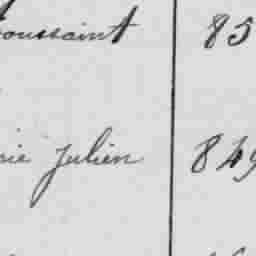 oussaint 85
rie Julien 849